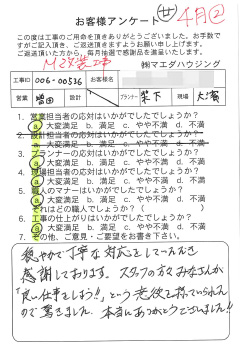 お客様アンケート
廿 4月②
この度は工事のご用命を頂きありがとうございました。お手数で
すがご記入頂き、ご返送頂きますようお願い申し上げます。
ご返送頂いた方から、毎月抽選で感謝品を進呈いたします。
M改装工事
㈱マエダハウジング
工事ID 006-00536 お客様名
営業 増田 設計 プランナー 木下 現場 大濱
1. 営業担当者の応対はいかがでしたでしょうか?
a 大変満足 b. 満足 c. やや不満 d. 不満
2. 設計担当者の応対はいかがでしたでしょうか?
a. 大変満足 b. 満足 c. やや不満 d. 不満
3. プランナーの応対はいかがでしたでしょうか?
a 大変満足 b. 満足 c. やや不満 d. 不満
4. 現場担当者の応対はいかがでしたでしょうか?
a 大変満足 b. 満足 c. やや不満 d. 不満
5. 職人のマナーはいかがでしたでしょうか?
a 大変満足 b. 満足 c. やや不満 d. 不満
それはどの職人でしょう? (
6. 工事の仕上がりはいかがでしたでしょうか?
a 大変満足 b. 満足 c. やや不満 d. 不満
7. その他、ご意見・ご要望をお書き下さい。
穏やかで丁寧な対応をしていただき
感謝しております。スタッフの方々みなさんが
「良い仕事をしよう!!」という意欲を持っていられた
ので驚きました。本当にありがとうございました!!